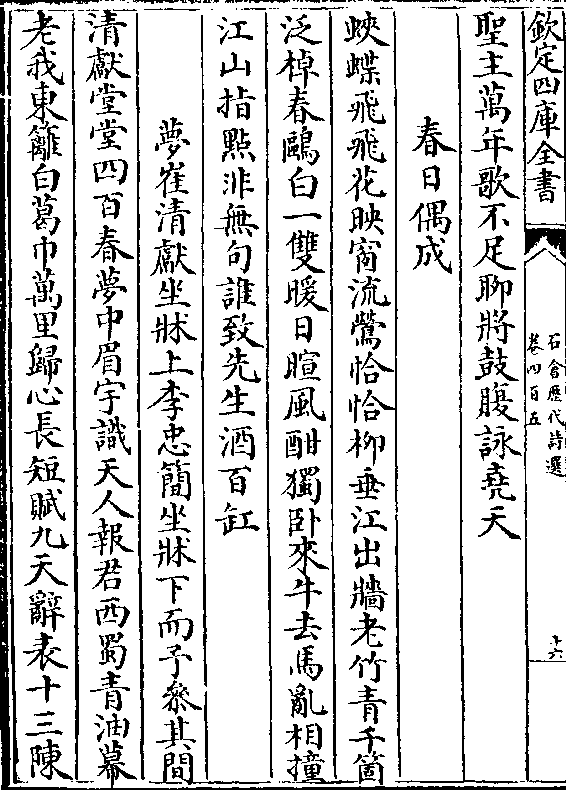 欽定四庫全書
石倉歷代詩選
卷四百五
十六
聖主萬年歌不足聊將鼓腹詠堯天
春日偶成
蛺蝶飛飛花映窗流鶯恰恰柳垂江出牆老竹青千箇
泛棹春鷗白一雙暖日暄風酣獨卧來牛去馬亂相撞
江山指點非無句誰致先生酒百缸
夢崔清獻坐牀上李忠簡坐牀下而予叅其間
清獻堂堂四百春夢中眉宇識天人報君西蜀青油幕
老我東籬白葛巾萬里歸心長短賦九天辭表十三陳